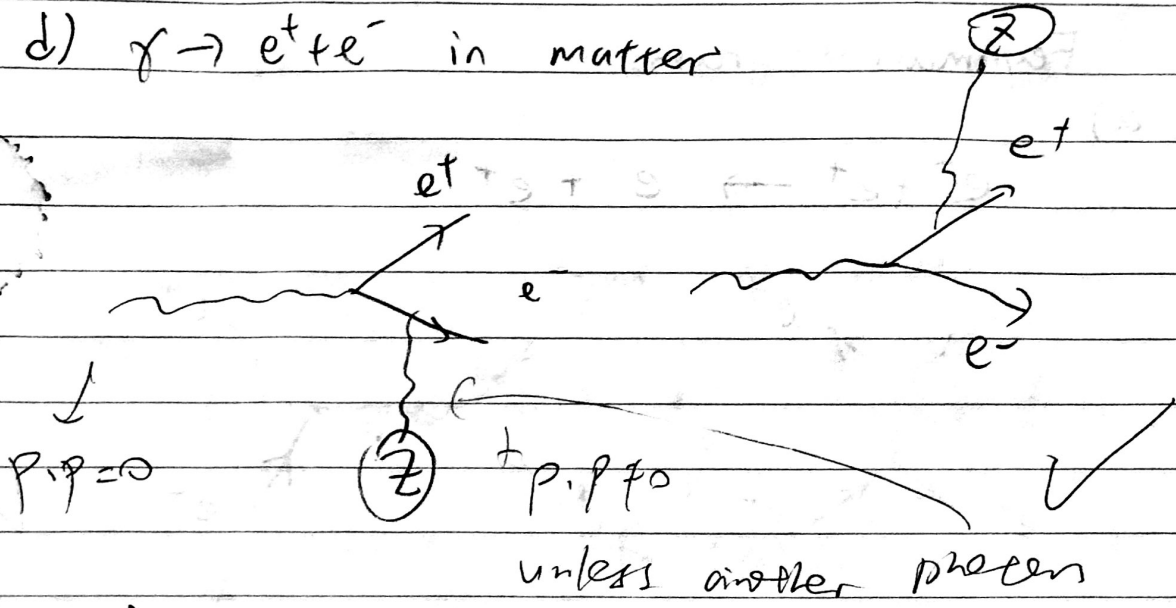 d) γ → e⁺ + e⁻ in matter
Z
e⁺
e⁺
e⁻
e⁻
p.p=0
Z
+ p.p≠0
unless another photon